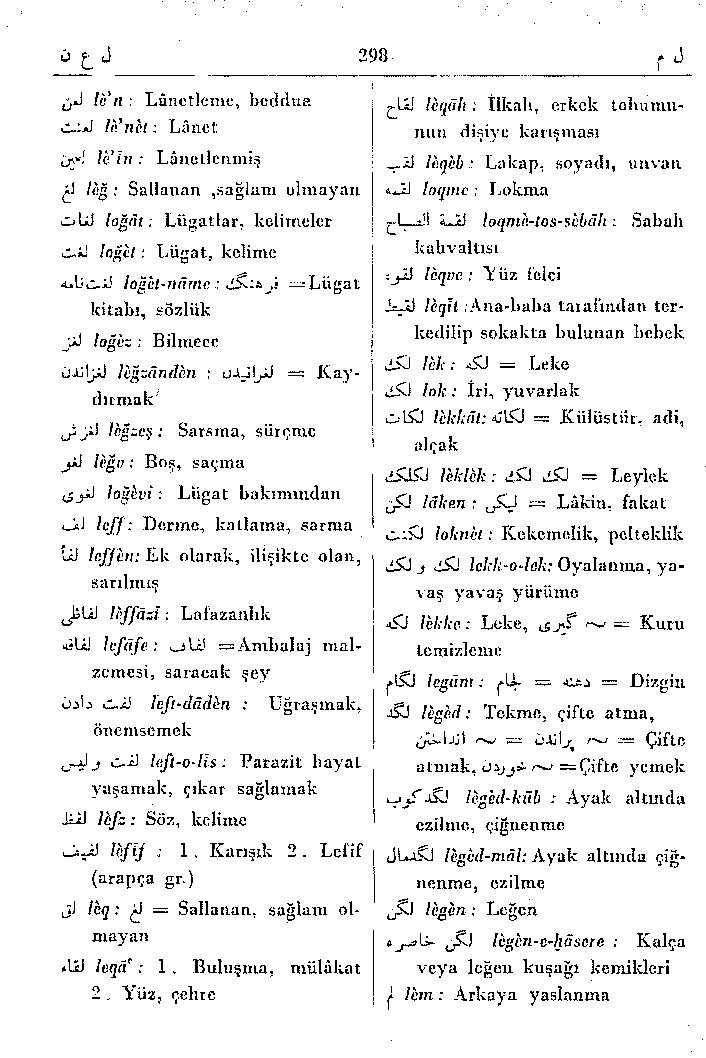 ل ع ن 298 ل م
لعن lè'n : Lânetleme, beddua
لعنت lè'nèt : Lânet
لعين lè'în : Lânetlenmiş
لغ lèğ : Sallanan ,sağlam olmayan
لغات loğât : Lügatlar, kelimeler
لغت loğèt : Lügat, kelime
لغت‌نامه loğèt-nâme : فرهنگ =Lügat
kitabı, sözlük
لغز loğèz : Bilmece
لغزاندن lèğzândèn : لغزانیدن = Kay-
dırmak
لغزش lèğzeş : Sarsma, sürçme
لغو lèğv : Boş, saçma
لغوی loğèvî : Lügat bakımından
لف leff : Derme, katlama, sarma
لفاً leffèn: Ek olarak, ilişikte olan,
sarılmış
لفاظی lèffâzî : Lafazanlık
لفافه lefâfe : لفاف =Ambalaj mal-
zemesi, saracak şey
لفت دادن left-dâdèn : Uğraşmak,
önemsemek
لفت و لیس left-o-lîs : Parazit hayat
yaşamak, çıkar sağlamak
لفظ lèfz : Söz, kelime
لفیف lèfîf : 1. Karışık 2. Lefif
(arapça gr.)
لق lèq : لغ = Sallanan, sağlam ol-
mayan
لقاء leqâ' : 1. Buluşma, mülâkat
2. Yüz, çehre
لقاح lèqâh : İlkah, erkek tohumu-
nun dişiye karışması
لقب lèqèb : Lakap, soyadı, unvan
لقمه loqme : Lokma
لقمة الصباح loqmè-tos-sèbâh : Sabah
kahvaltısı
لقوه lèqve : Yüz felci
لقیط lèqît :Ana-baba tarafından ter-
kedilip sokakta bulunan bebek
لک lèk : لکه = Leke
لک lok : İri, yuvarlak
لکات lèkkât: لکاته = Külüstür, adi,
alçak
لکلک lèklèk : لک لک = Leylek
لکن lâken : لیکن = Lâkin, fakat
لکنت loknèt : Kekemelik, pelteklik
لک و لک lekk-o-lek: Oyalanma, ya-
vaş yavaş yürüme
لکه lèkke : Leke, ~ گیری = Kuru
temizleme
لگام legâm : لجام = دهنه = Dizgin
لگد lègèd : Tekme, çifte atma,
~ انداختن = ~ پراندن = Çifte
atmak, ~ خوردن =Çifte yemek
لگدکوب lègèd-kûb : Ayak altında
ezilme, çiğnenme
لگدمال lègèd-mâl: Ayak altında çiğ-
nenme, ezilme
لگن lègèn : Leğen
لگن خاصره lègèn-e-hâsere : Kalça
veya leğen kuşağı kemikleri
لم lèm : Arkaya yaslanma